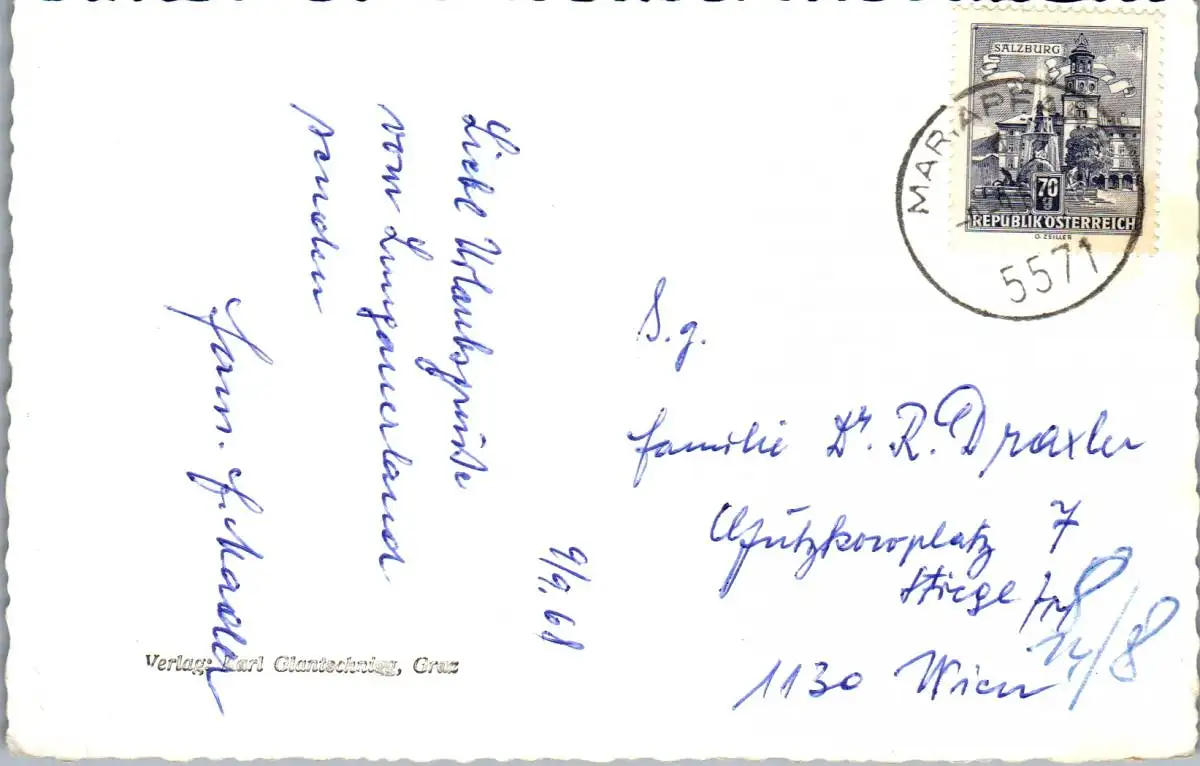 Liebe Urlaubsgrüße
vom Lungauerland
senden
Fam.
9/9.68
Verlag: Karl Glantschnigg, Graz
SALZBURG
70 g
REPUBLIK ÖSTERREICH
O. ZEILLER
MARIAPF
5571
S.g.
Familie Dr. R. Draxler
Gützkowplatz 7
Stiege
1130 Wien
14/8